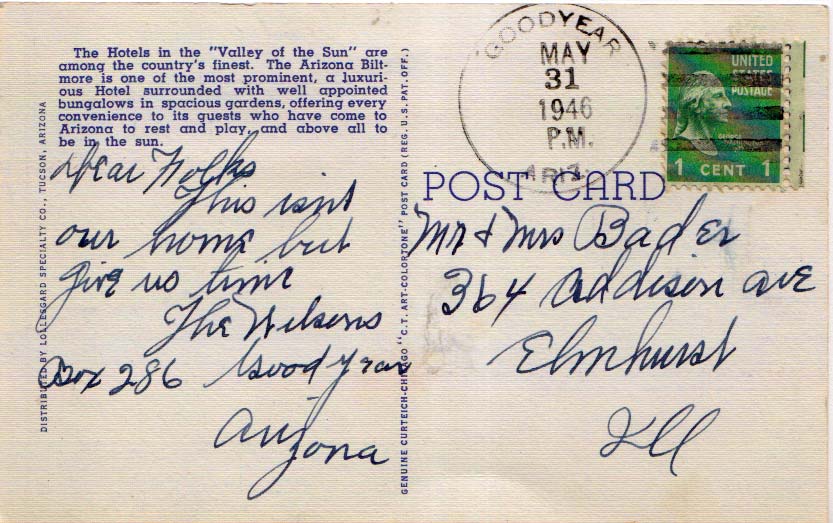 The Hotels in the "Valley of the Sun" are
among the country's finest. The Arizona Bilt-
more is one of the most prominent, a luxuri-
ous Hotel surrounded with well appointed
bungalows in spacious gardens, offering every
convenience to its guests who have come to
Arizona to rest and play, and above all to
be in the sun.
Dear Folks
This isnt
our home but
give us time
The Nelsons
Box 286 Goodyear
Arizona
DISTRIBUTED BY LOLLESGARD SPECIALTY CO., TUCSON, ARIZONA
GENUINE CURTEICH-CHICAGO "C.T. ART-COLORTONE" POST CARD (REG. U.S. PAT. OFF.)
GOODYEAR
MAY
31
1946
P.M.
ARIZ.
UNITED
STATES
POSTAGE
1 CENT 1
POST CARD
Mr & Mrs Bader
364 Addison Ave
Elmhurst
Ill